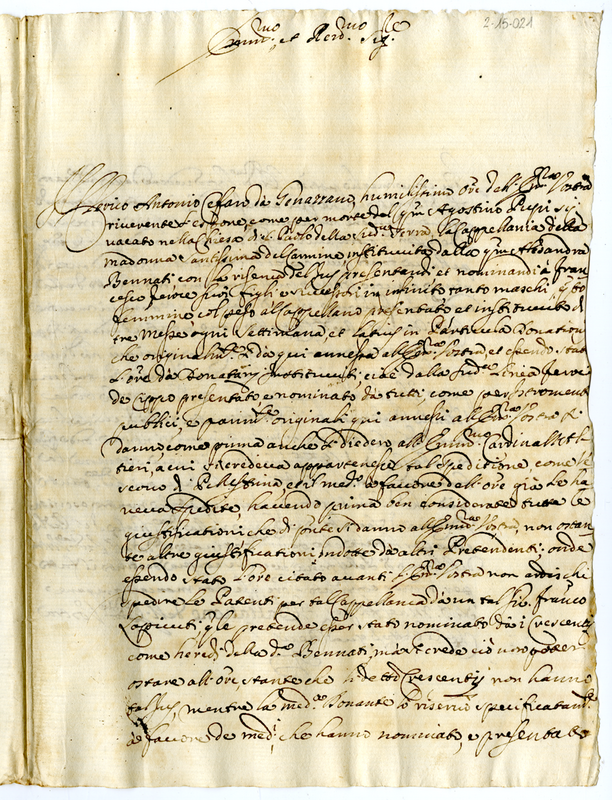 2-15-021
Emin.mo et Rev.mo Sig.re
Antonio Cefaro da Genazzano, humilissimo Ore dell'Em.za Vostra
riverente l'espone, come per morte del qm Agostino
vacato nella Chiesa di S. Paolo della Terra la Cappellania della
Madonna Santissima del Sammo instituita dalla qm Alesandra
Bennati con la riserva del Jus presentandi et nominandi à Fran
cesco suoi figli e successori in infinito tanto maschi, qto
femmine col peso al Cappellano presentato et instituendo di
tre Messe ogni Settimana, et latius in Particula Donation
che original.te si dà qui annessa all'Em.za Vostra, et essendo stato
l'Ore da Donatarij instituenti; cioè dalla linea
presentato e nominato da tutti come per Istromenti
publici, e originali qui annessi all'Em.za Vostra si
danno, come prima anche si diedero all'Emin.mo Cardinal Alt
tieri, a cui si credeva appartenesse tal speditione, come Ve
scovo di Palestrina et il med.o à favore dell'Ore già le ha
neva spedite havendo prima ben considerate tutte le
giustificationi che di pnte si danno all'Em.za Vostra, non ostan
te altre giustificationi indotte da altri Pretendenti; onde
essendo stato l'Ore citato avanti l'Em.za Vostra non
spedire le Patenti per tal Cappellania da un tal Gio. Fran.co
le pretende esser stato nominato dai Crescentij
come heredi della d.a Bennati, mà si crede ciò non poter
ostare all'Ore stante che li detti Crescentij non hanno
tal Jus, mentre la med.a Donante lo riservò specificatam.te
à favore de med.i che hanno nominato, e presentato